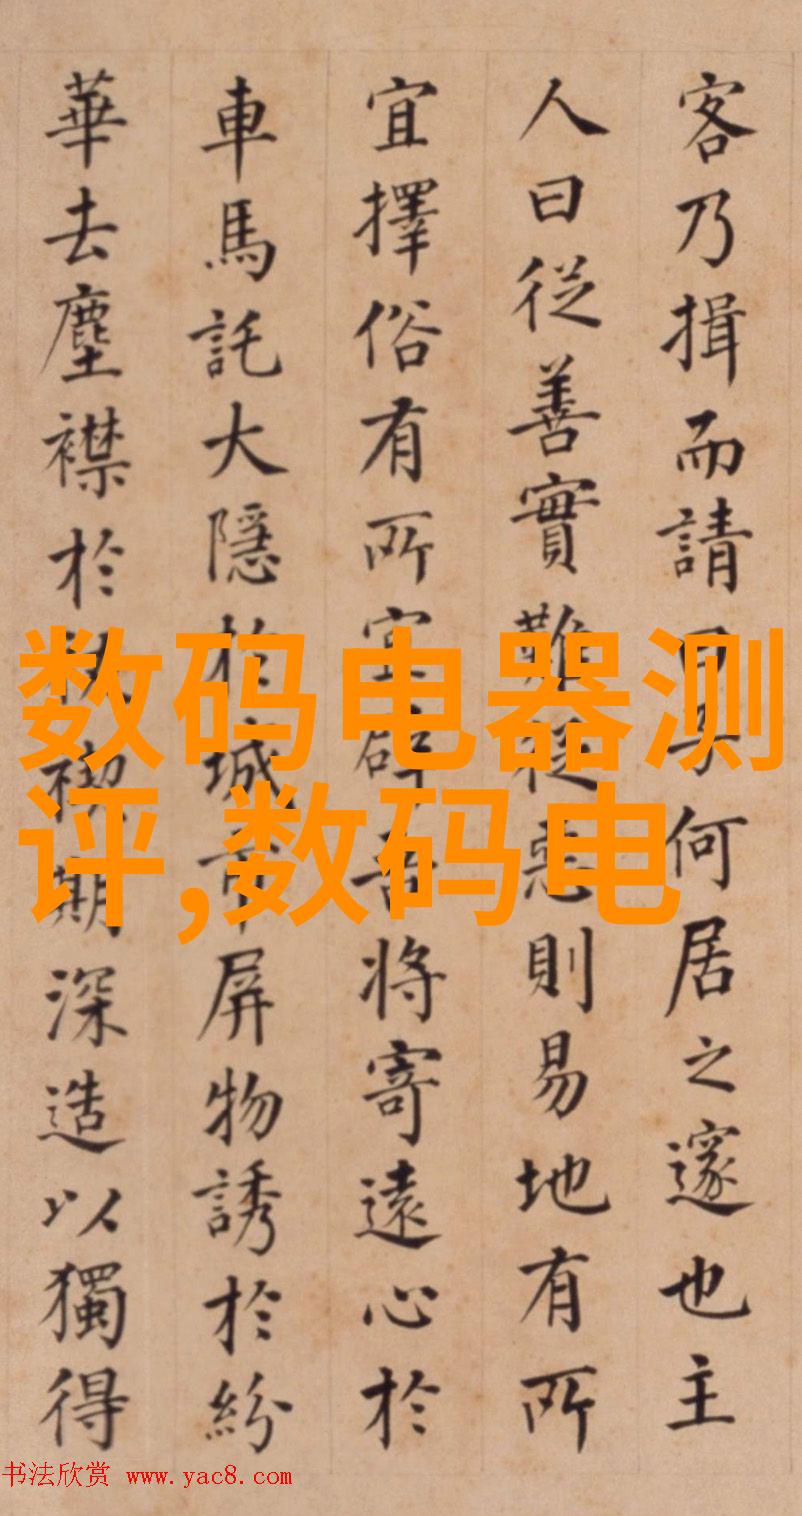 客乃揖而請曰子何居之邃也主
人曰從善實難從惡則易地有所
宜擇俗有所宜辟吾將寄遠心於
車馬託大隱於城市屏物誘於紛
華去塵襟於 禊期深造以獨得
数码电器测
评,数码电
书法欣赏 www.yac8.com